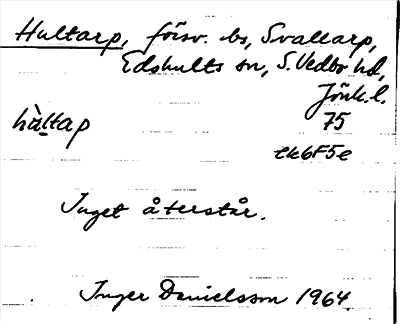 Hultarp, försv. bs, Svallarp,
Edshults sn, S. Vedbo hd,
Jönk. l.
hàltap 75
ek6F5e
Inget återstår.
Inger Danielsson 1964